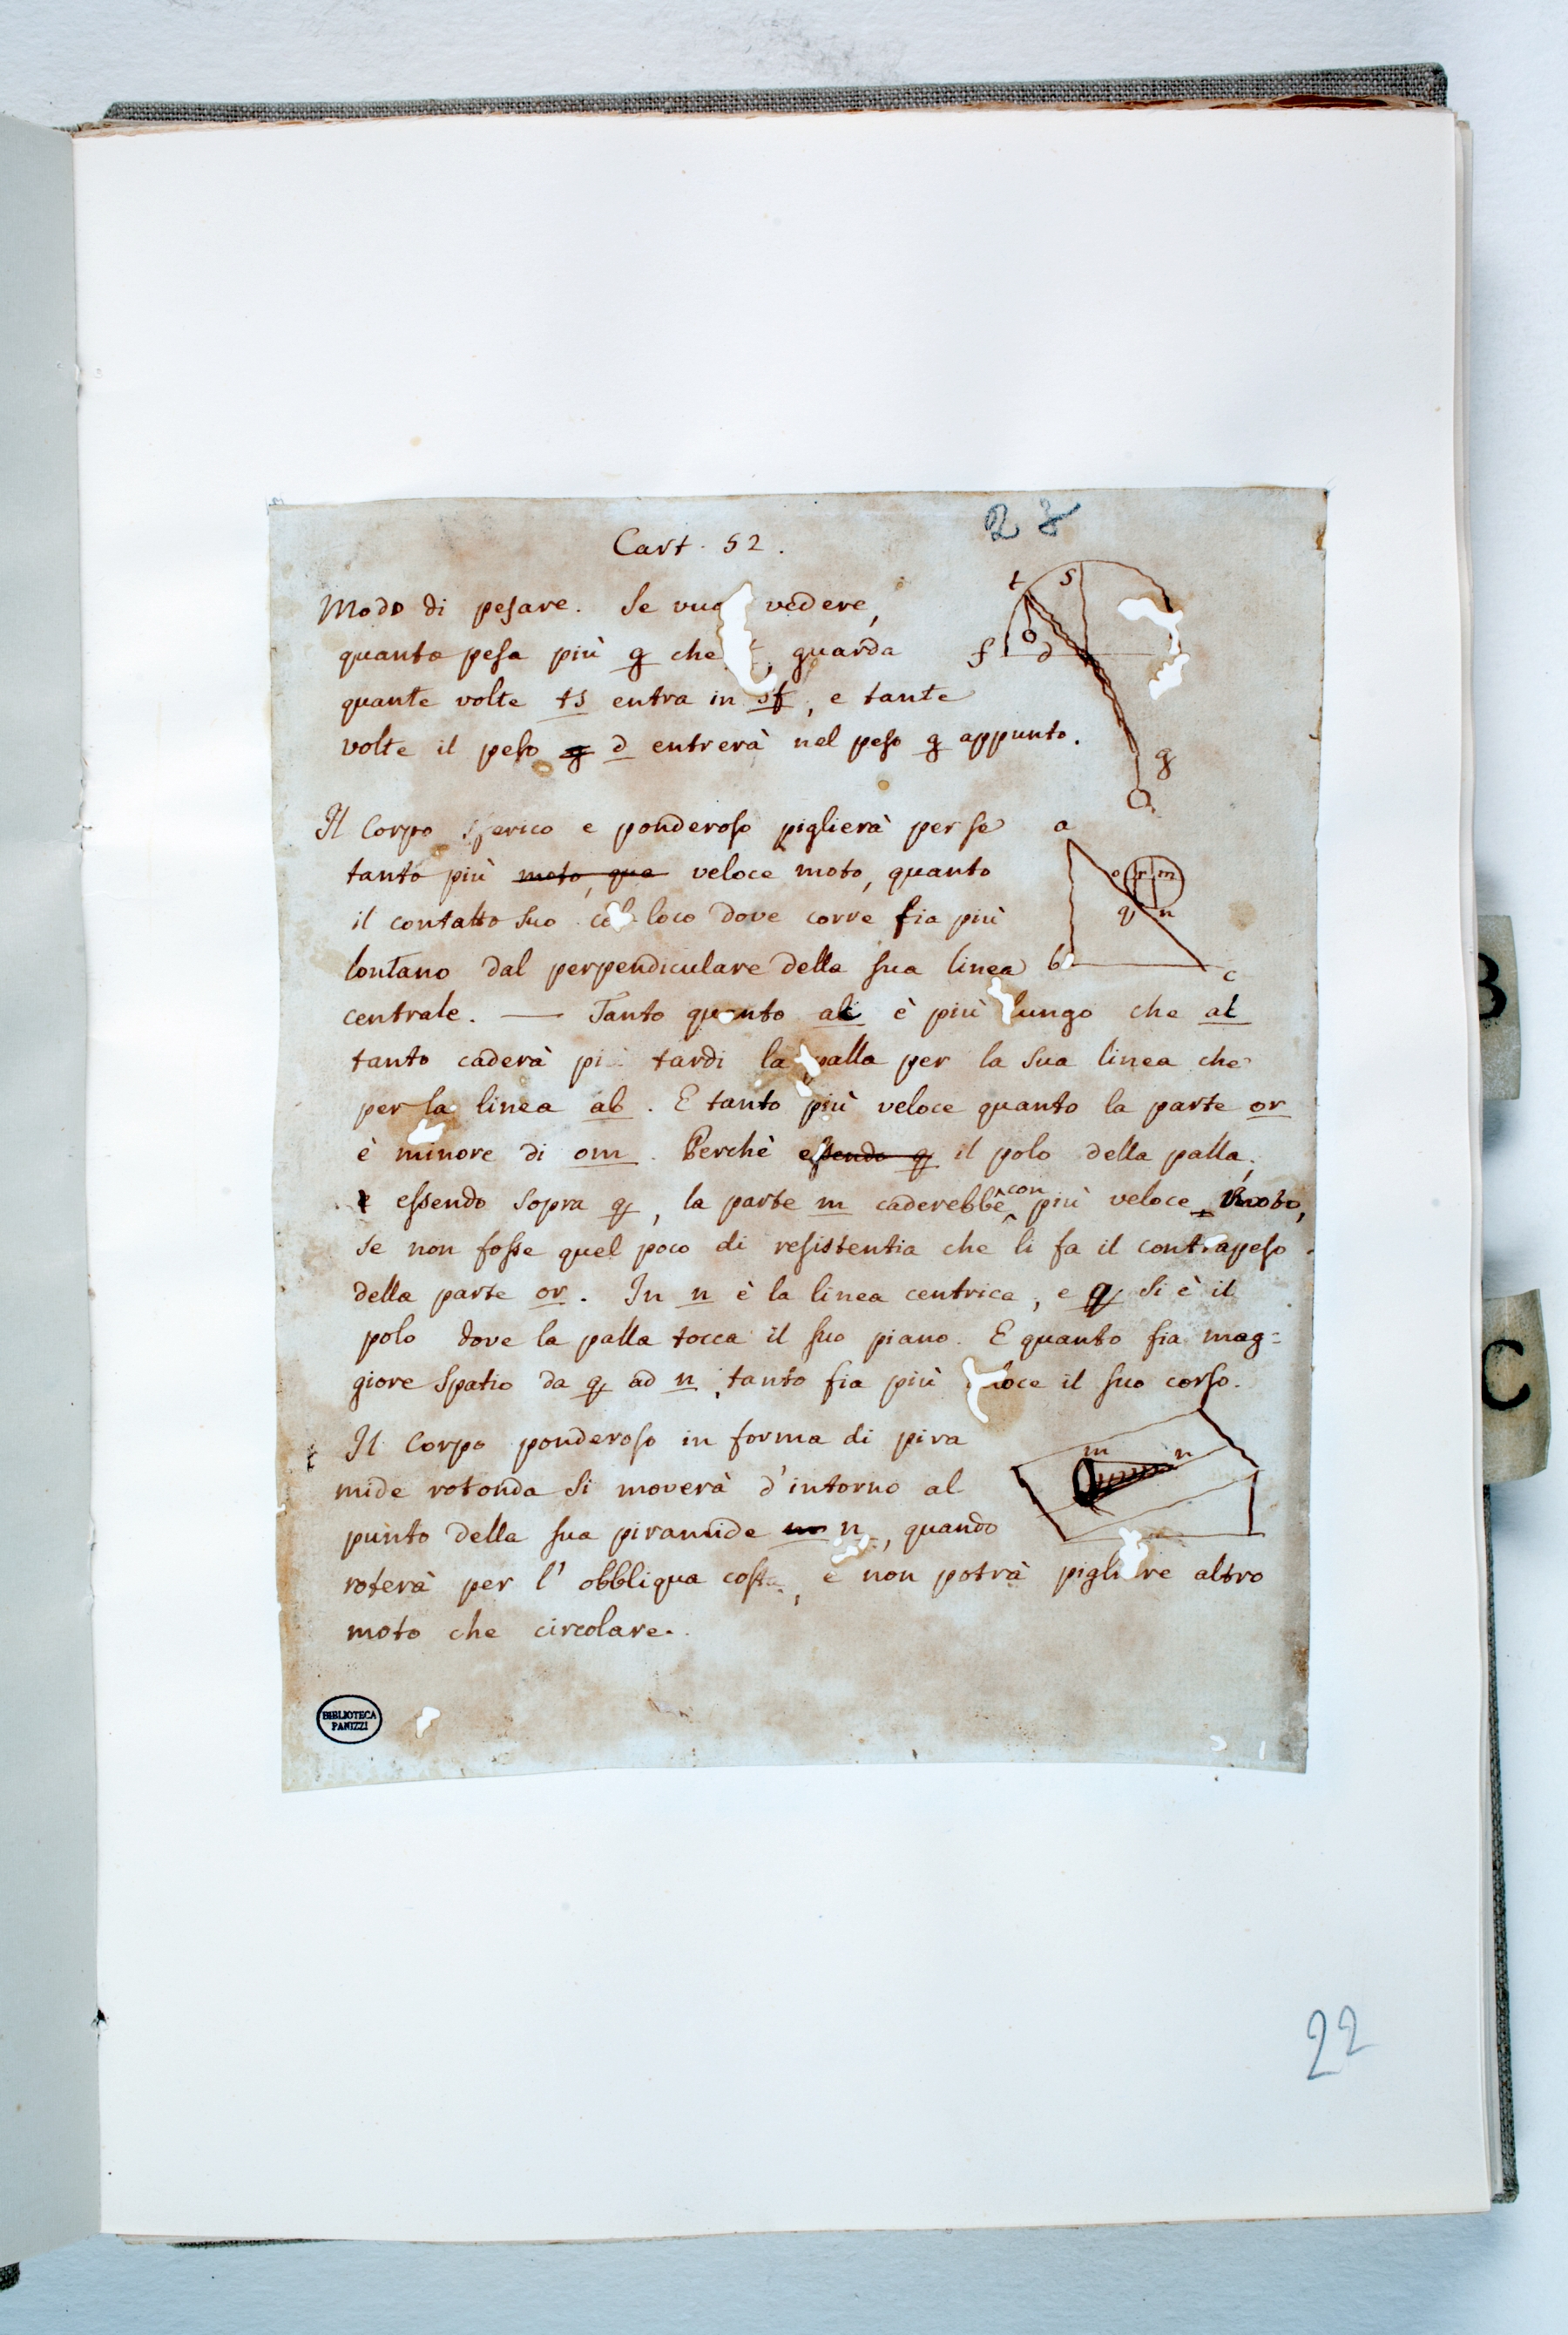 23
Cart. 52.
Modo di pesare. Se vuo vedere,
quanto pesa più g che , guarda
quante volte ts entra in sf, e tante
volte il peso g d entrerà nel peso g appunto.
t s
f d
g
Il Corpo sferico e ponderoso piglierà per se
tanto più moto, qua veloce moto, quanto
il contatto suo col loco dove corre fia più
lontano dal perpendiculare della sua linea
centrale. — Tanto quanto ac è più lungo che ab
tanto caderà più tardi la palla per la sua linea che
per la linea ab. E tanto più veloce quanto la parte or
è minore di om. Perchè essendo q il polo della palla,
essendo sopra q, la parte m caderebbe con più veloce moto,
se non fosse quel poco di resistentia che li fa il contrapeso
della parte or. In n è la linea centrica, e q si è il
polo dove la palla tocca il suo piano. E quanto fia mag=
giore spatio da q ad n, tanto fia più veloce il suo corso.
a
o r m
q n
b c
Il Corpo ponderoso in forma di pira
mide rotonda si moverà d'intorno al
punto della sua piramide n, quando
roterà per l'obbliqua costa, e non potrà pigliare altro
moto che circolare.
m n
BIBLIOTECA
PANIZZI
22
B
C